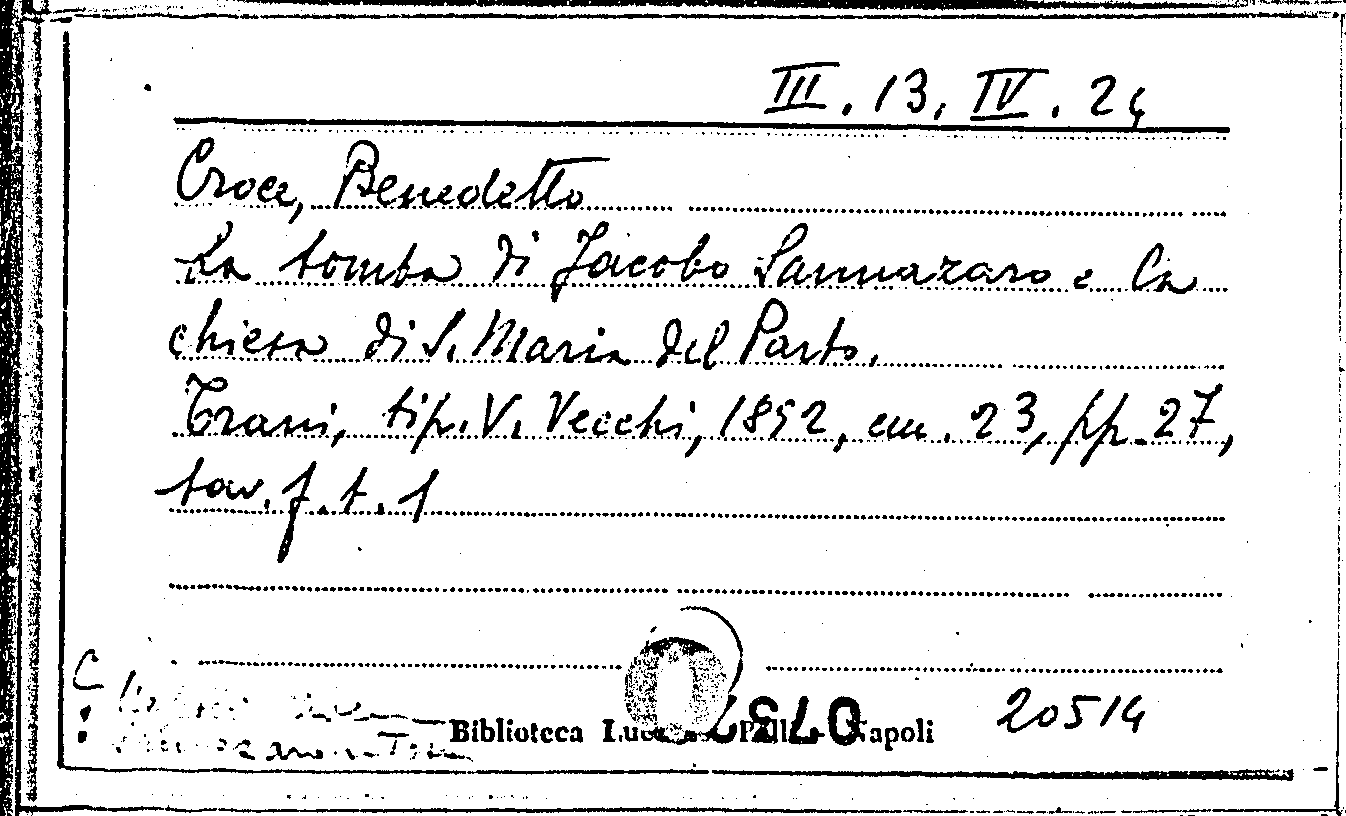 III. 13. IV. 24
Croce, Benedetto
La tomba di Jacobo Sannazaro e la
chiesa di S. Maria del Parto.
Trani, tip. V. Vecchi, 1892, cm. 23, pp. 27,
tav. f. t. 1
C
Biblioteca Napoli
20514